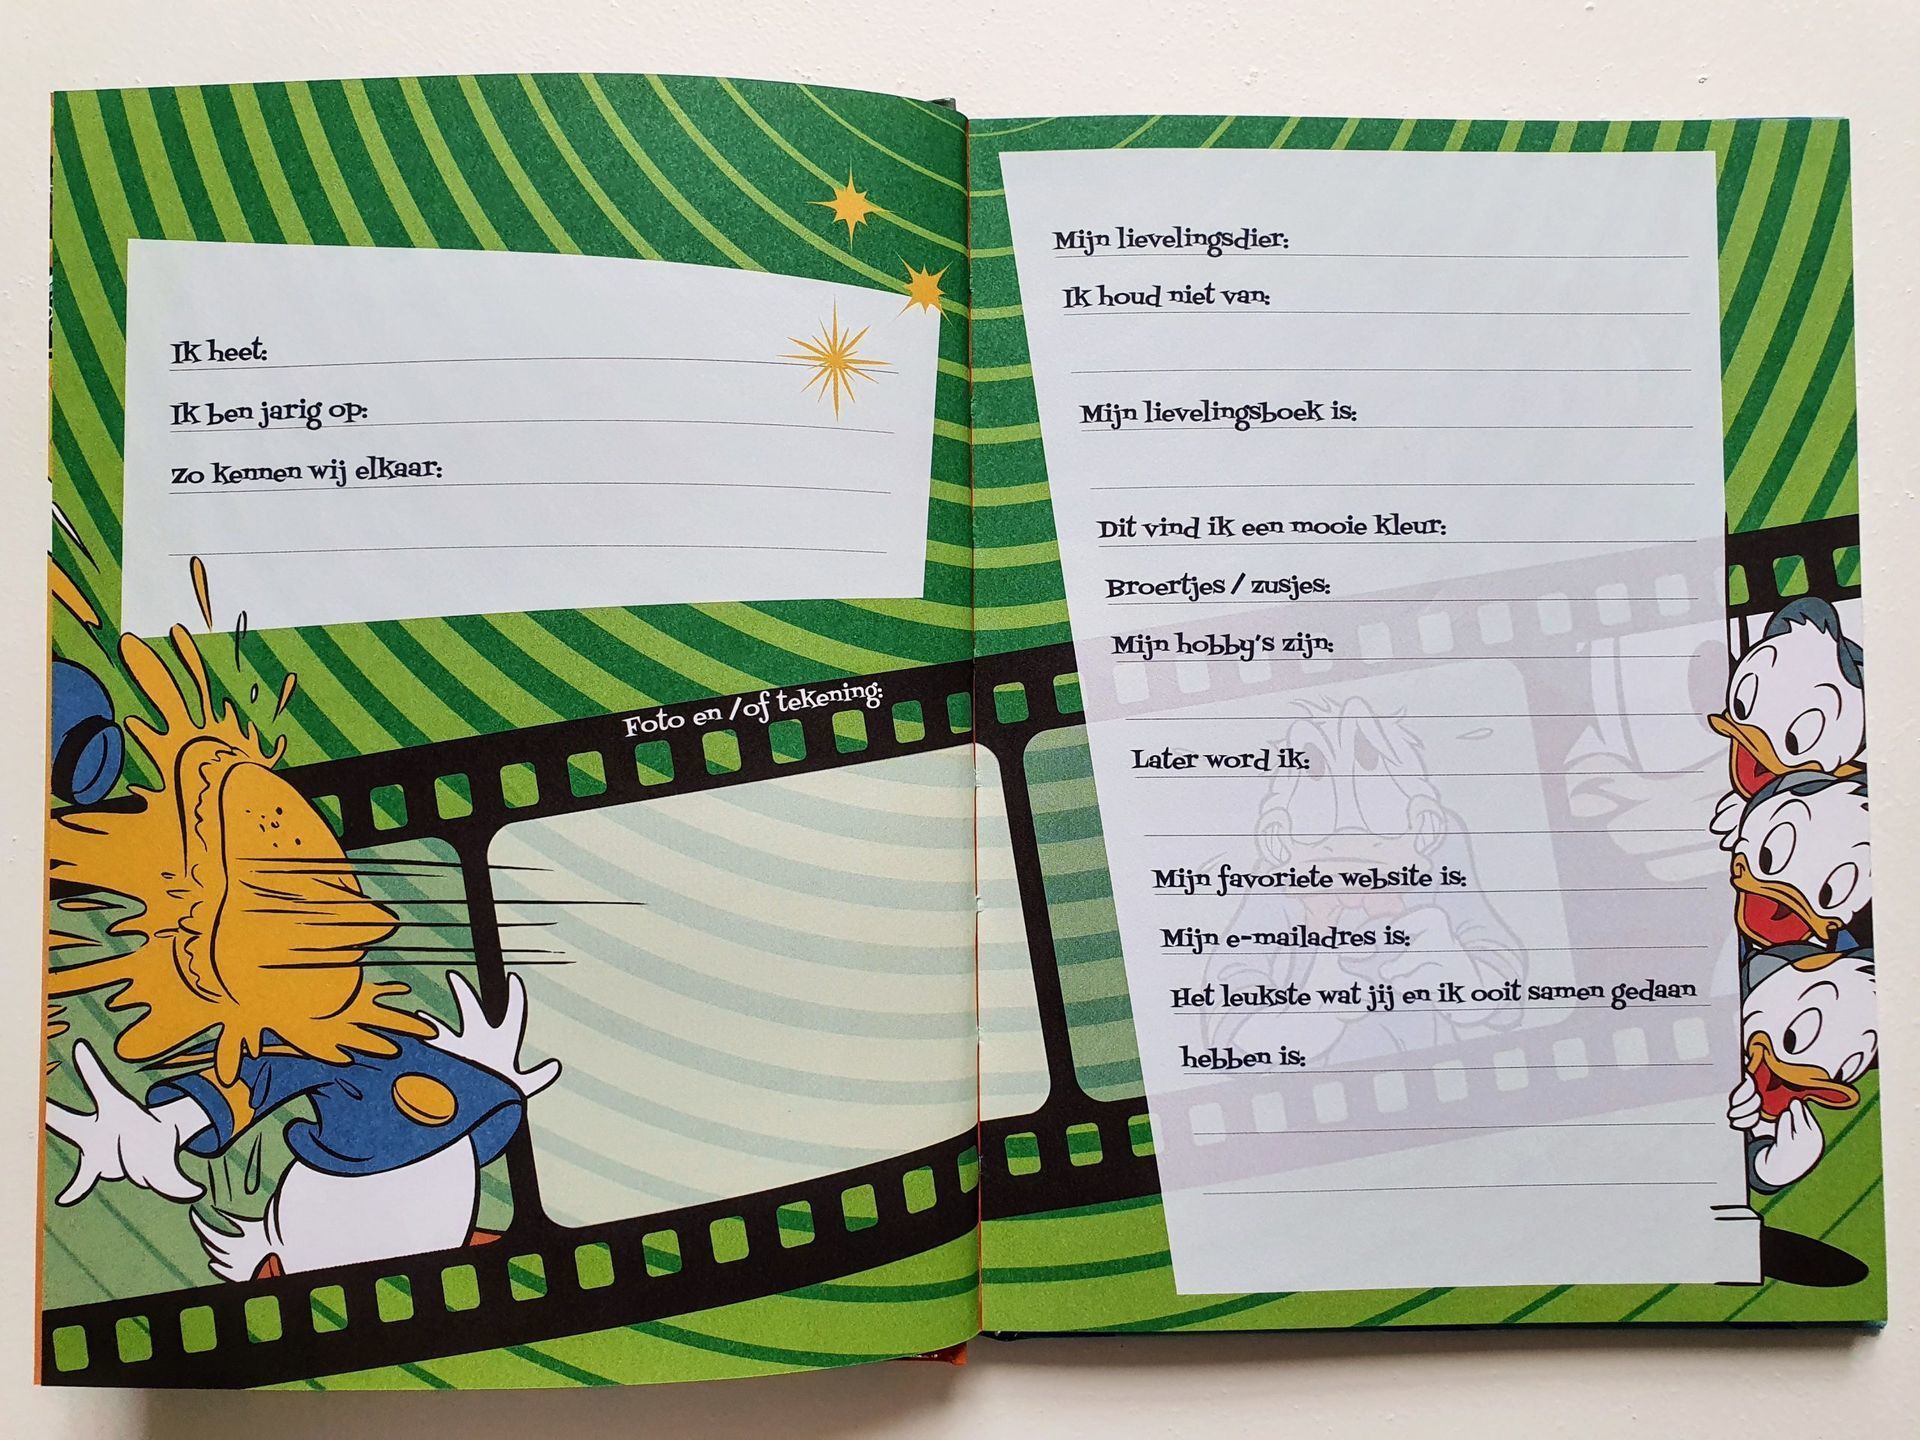 Ik heet:
Ik ben jarig op:
Zo kennen wij elkaar:
Foto en /of tekening:
Mijn lievelingsdier:
Ik houd niet van:
Mijn lievelingsboek is:
Dit vind ik een mooie kleur:
Broertjes / zusjes:
Mijn hobby's zijn:
Later word ik:
Mijn favoriete website is:
Mijn e-mailadres is:
Het leukste wat jij en ik ooit samen gedaan
hebben is: